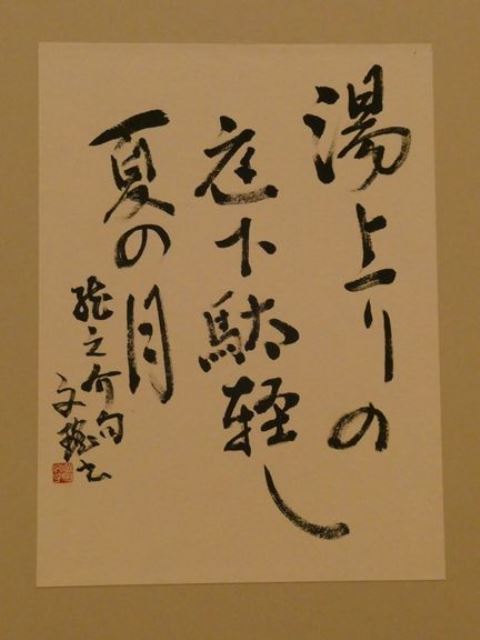 湯上りの
庭下駄軽し
夏の月
龍之介句
文